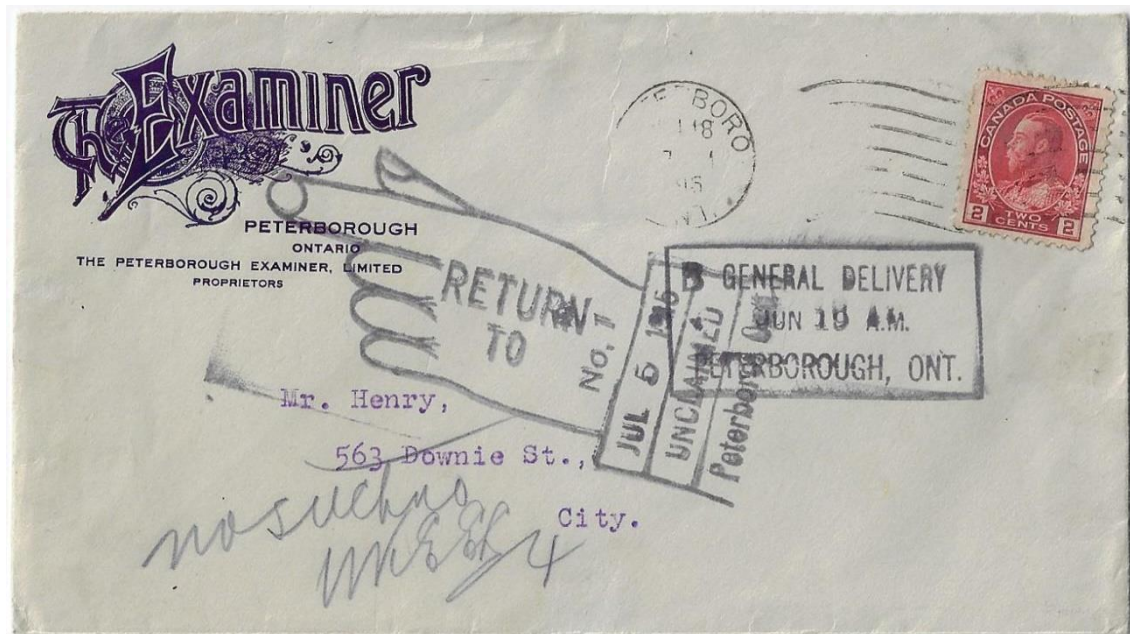 The Examiner
PETERBOROUGH
ONTARIO
THE PETERBOROUGH EXAMINER, LIMITED
PROPRIETORS
CANADA POSTAGE
2 TWO CENTS 2
RETURN
TO
No. 1
JUL 5
UNCLAIMED
Peterboro
B GENERAL DELIVERY
JUN 19 A.M.
PETERBOROUGH, ONT.
Mr. Henry,
563 Downie St.,
City.
no such no